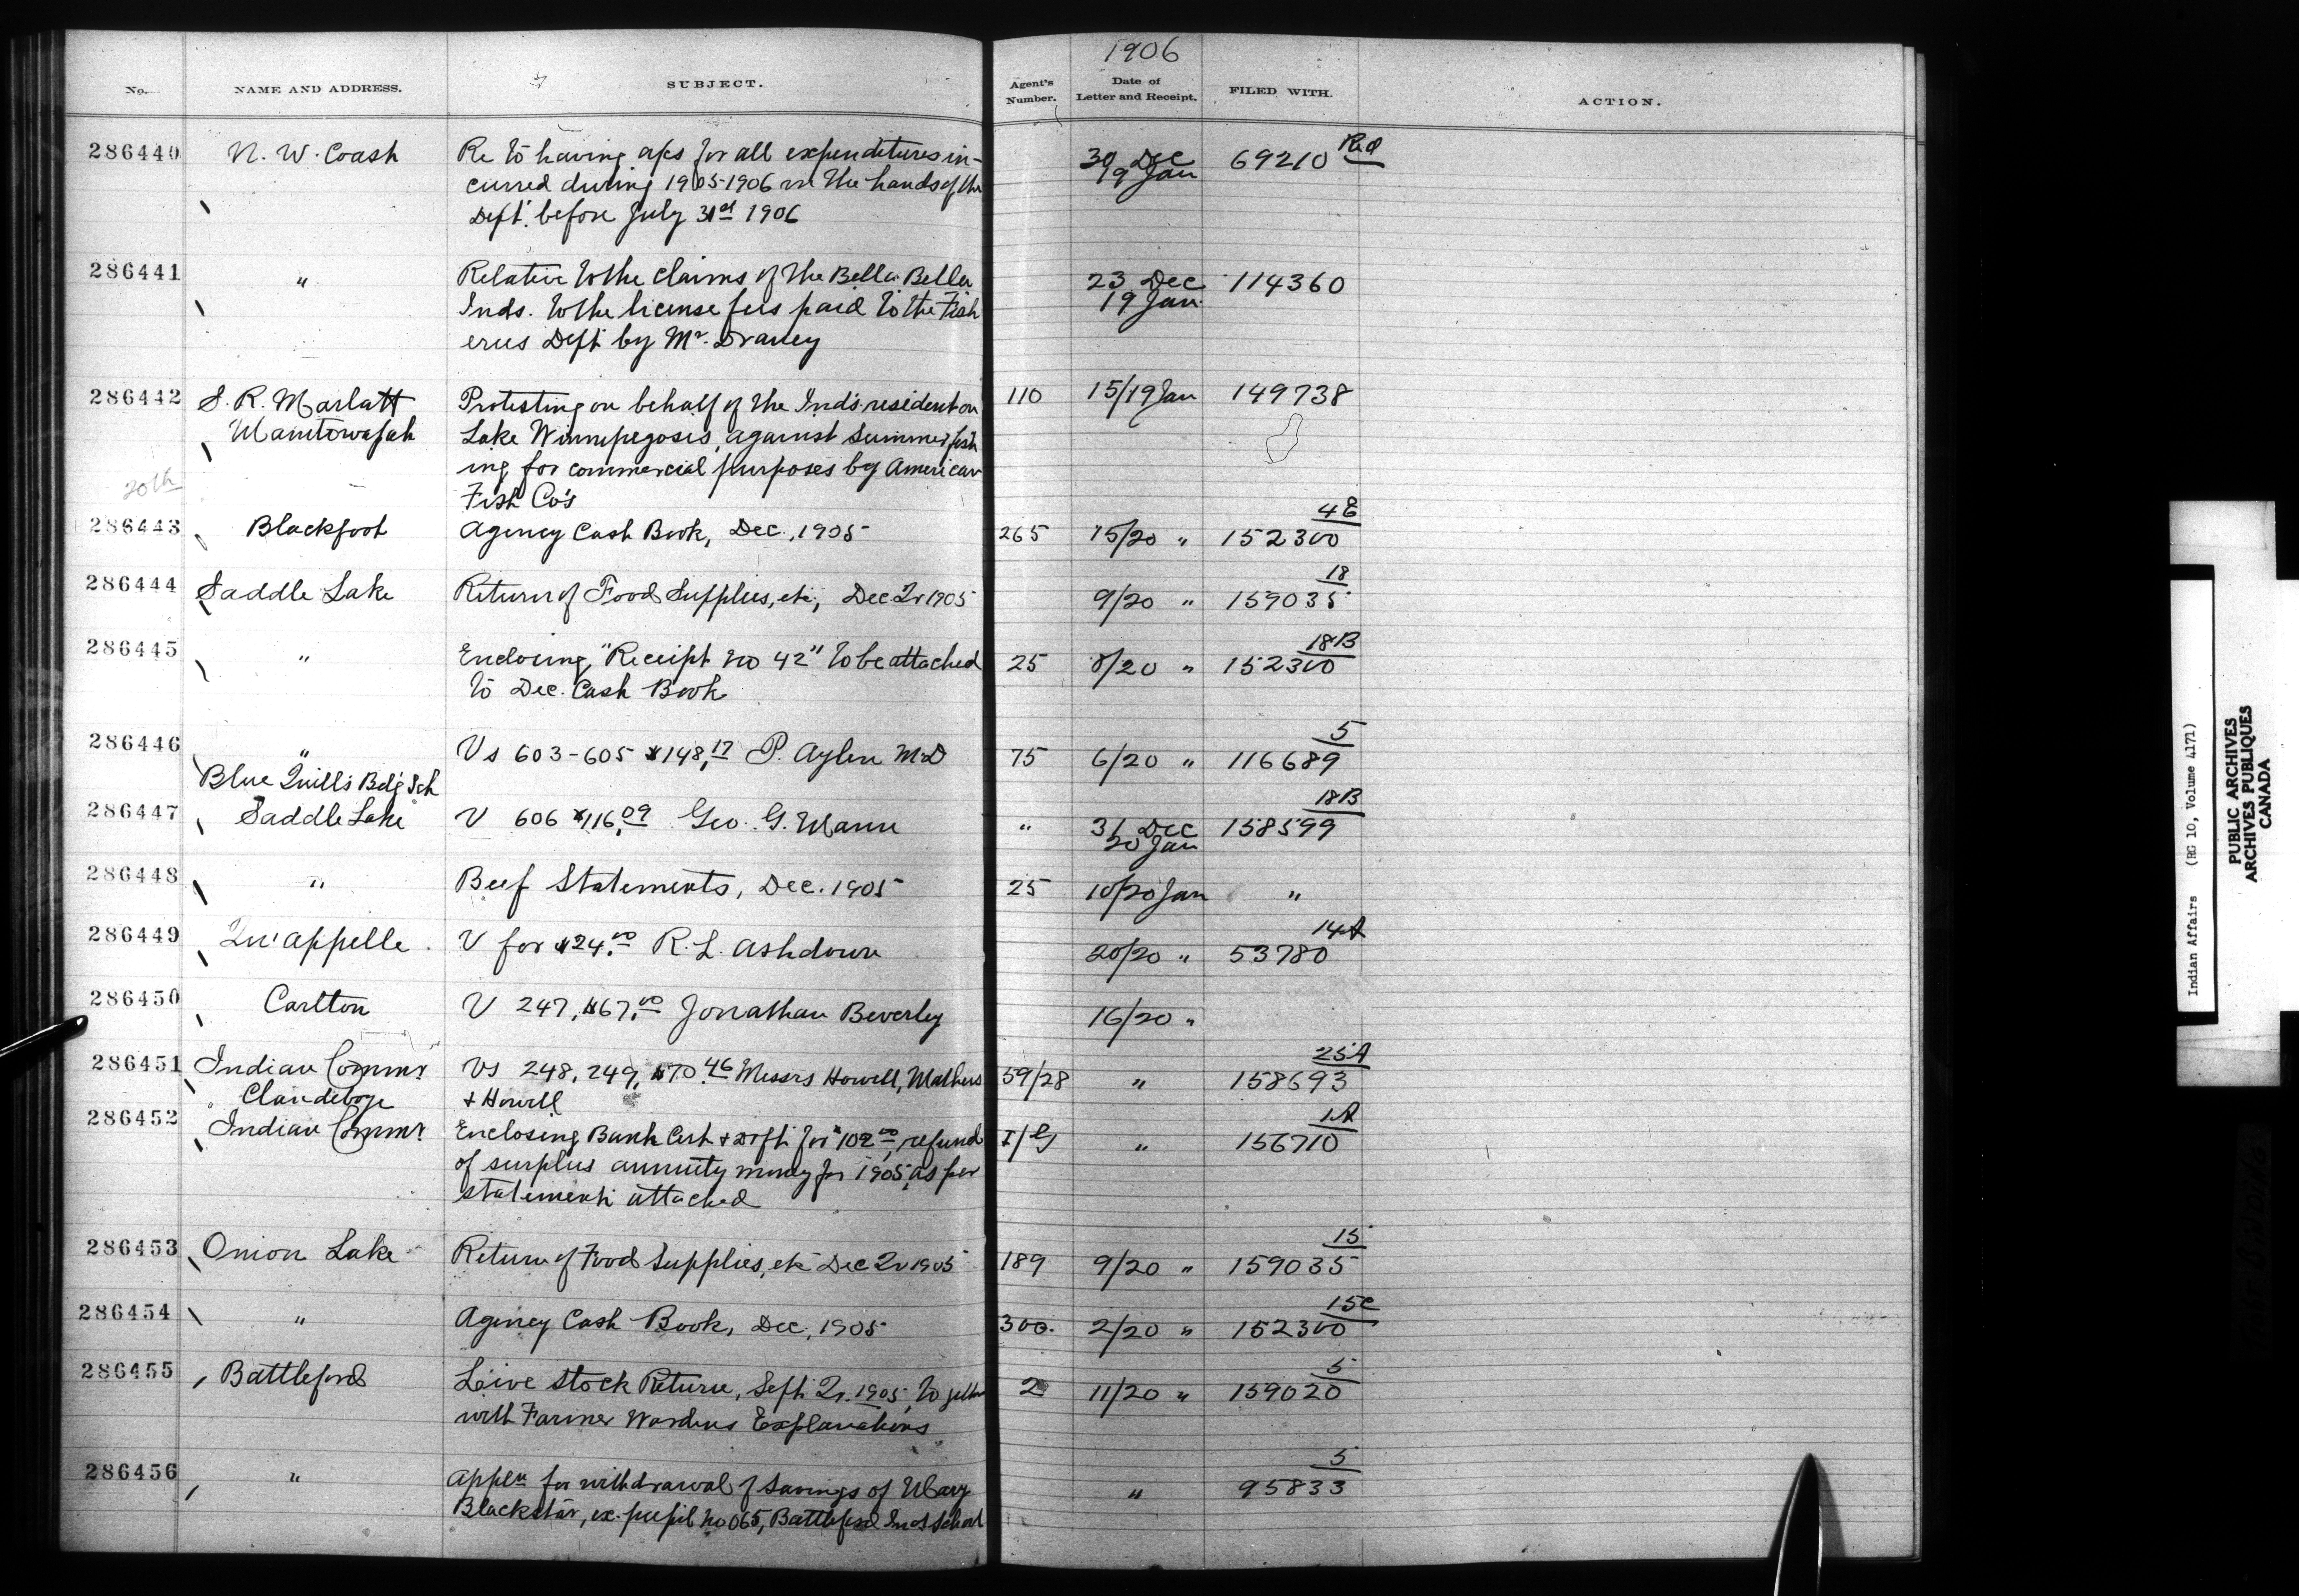 1906
No. NAME AND ADDRESS. SUBJECT. Agent's Number. Date of Letter and Receipt. FILED WITH. ACTION.
286440 N. W. Coast Re to having a/cs for all expenditures in- 30 Dec 69210 Red
curred during 1905-1906 in the hands of the 19 Jan
Dept. before July 31st 1906
286441 " Relative to the claims of the Bella Bella 23 Dec 114360
Inds. to the license fees paid to the Fish 19 Jan
eries Dept by Mr. Draney
286442 S. R. Marlatt Protesting on behalf of the Inds resident on 110 15/19 Jan 149738
Manitowapah Lake Winnipegosis, against summer fish
ing for commercial purposes by American
20th
Fish Co's
4E
286443 Blackfoot Agency Cash Book, Dec., 1905 265 15/20 " 152300
18
286444 Saddle Lake Return of Food Supplies, etc., Dec Qr 1905 9/20 " 159035
18B
286445 " Enclosing, "Receipt No 42" to be attached 25 8/20 " 152300
to Dec. Cash Book
5
286446 " Vs 603-605 $148.17 P. Aylen M.D 75 6/20 " 116689
Blue Quill's Bdg Sch
18B
286447 Saddle Lake V 606 $116.09 Geo. G. Mann " 31 Dec 158599
20 Jan
286448 " Beef Statements, Dec. 1905 25 10/20 Jan "
14A
286449 Qu'appelle V for $24.00 R. L. Ashdown 20/20 " 53780
286450 Carlton V 247, $67.00 Jonathan Beverley 16/20 "
25A
286451 Indian Commr Vs 248, 249, $70.46 Messrs Howell, Mathers 59/28 " 158693
Clandeboye + Howell
1A
286452 Indian Commr Enclosing Bank Cert + Dft for $102.00, refund " 156710
of surplus annuity money for 1905, as per
statement attached
15
286453 Onion Lake Return of Food Supplies, etc Dec Qr 1905 189 9/20 " 159035
15C
286454 " Agency Cash Book, Dec., 1905 300. 2/20 " 152300
5
286455 Battleford Live Stock Return, Sept Qr. 1905, together 2 11/20 " 159020
with Farmer Wardens Explanations
5
286456 " Appln for withdrawal of savings of Mary " 95833
Blackstar, ex. pupil No 065, Battleford Ind School
Indian Affairs (RG 10, Volume 4171)
PUBLIC ARCHIVES
ARCHIVES PUBLIQUES
CANADA